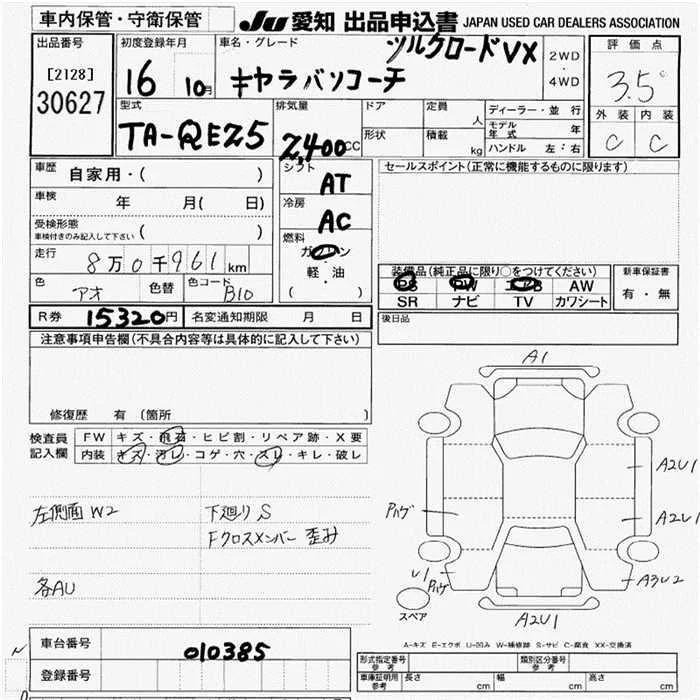 車内保管・守衛保管
JU 愛知 出品申込書 JAPAN USED CAR DEALERS ASSOCIATION
出品番号
[2128]
30627
初度登録年月
16 10月
車名・グレード
シルクロード VX
キャラバンコーチ
2WD
・
4WD
評価点
3.5
外装 内装
C C
型式
TA-QE25
排気量
2,400cc
ドア
形状
定員 人
積載 kg
ディーラー・並行
モデル年式 年
ハンドル 左:右
車歴 自家用・( )
車検 年 月( 日)
受検形態
車検付きのみ記入して下さい ( )
走行 8万0千961km
色 アオ 色替 色コード B10
シフト
AT
冷房
AC
燃料
ガソリン
・
軽・油
( )
セールスポイント(正常に機能するものに限ります)
装備品(純正品に限り○をつけてください)
PS PW エアB AW
SR ナビ TV カワシート
新車保証書
有・無
後日品
R券 15320円 名変通知期限 月 日
注意事項申告欄(不具合内容等は具体的に記入して下さい)
修復歴 有 (箇所 )
検査員記入欄
FW キズ・飛石・ヒビ割・リペア跡・X要
内装 キズ・汚レ・コゲ・穴・スレ・キレ・破レ
左側面W2
下廻りS
Fクロスメンバー歪み
各AU
A1
A2U1
A2U1
A3U2
A2U1
Pハゲ
U1
Pハゲ
スペア
A-キズ E-エクボ U-凹み W-補修跡 S-サビ C-腐食 XX-交換済
車台番号 010385
登録番号
型式指定番号 参考
類別区分番号 参考
車庫証明用 参考 長さ cm 幅 cm 高さ cm